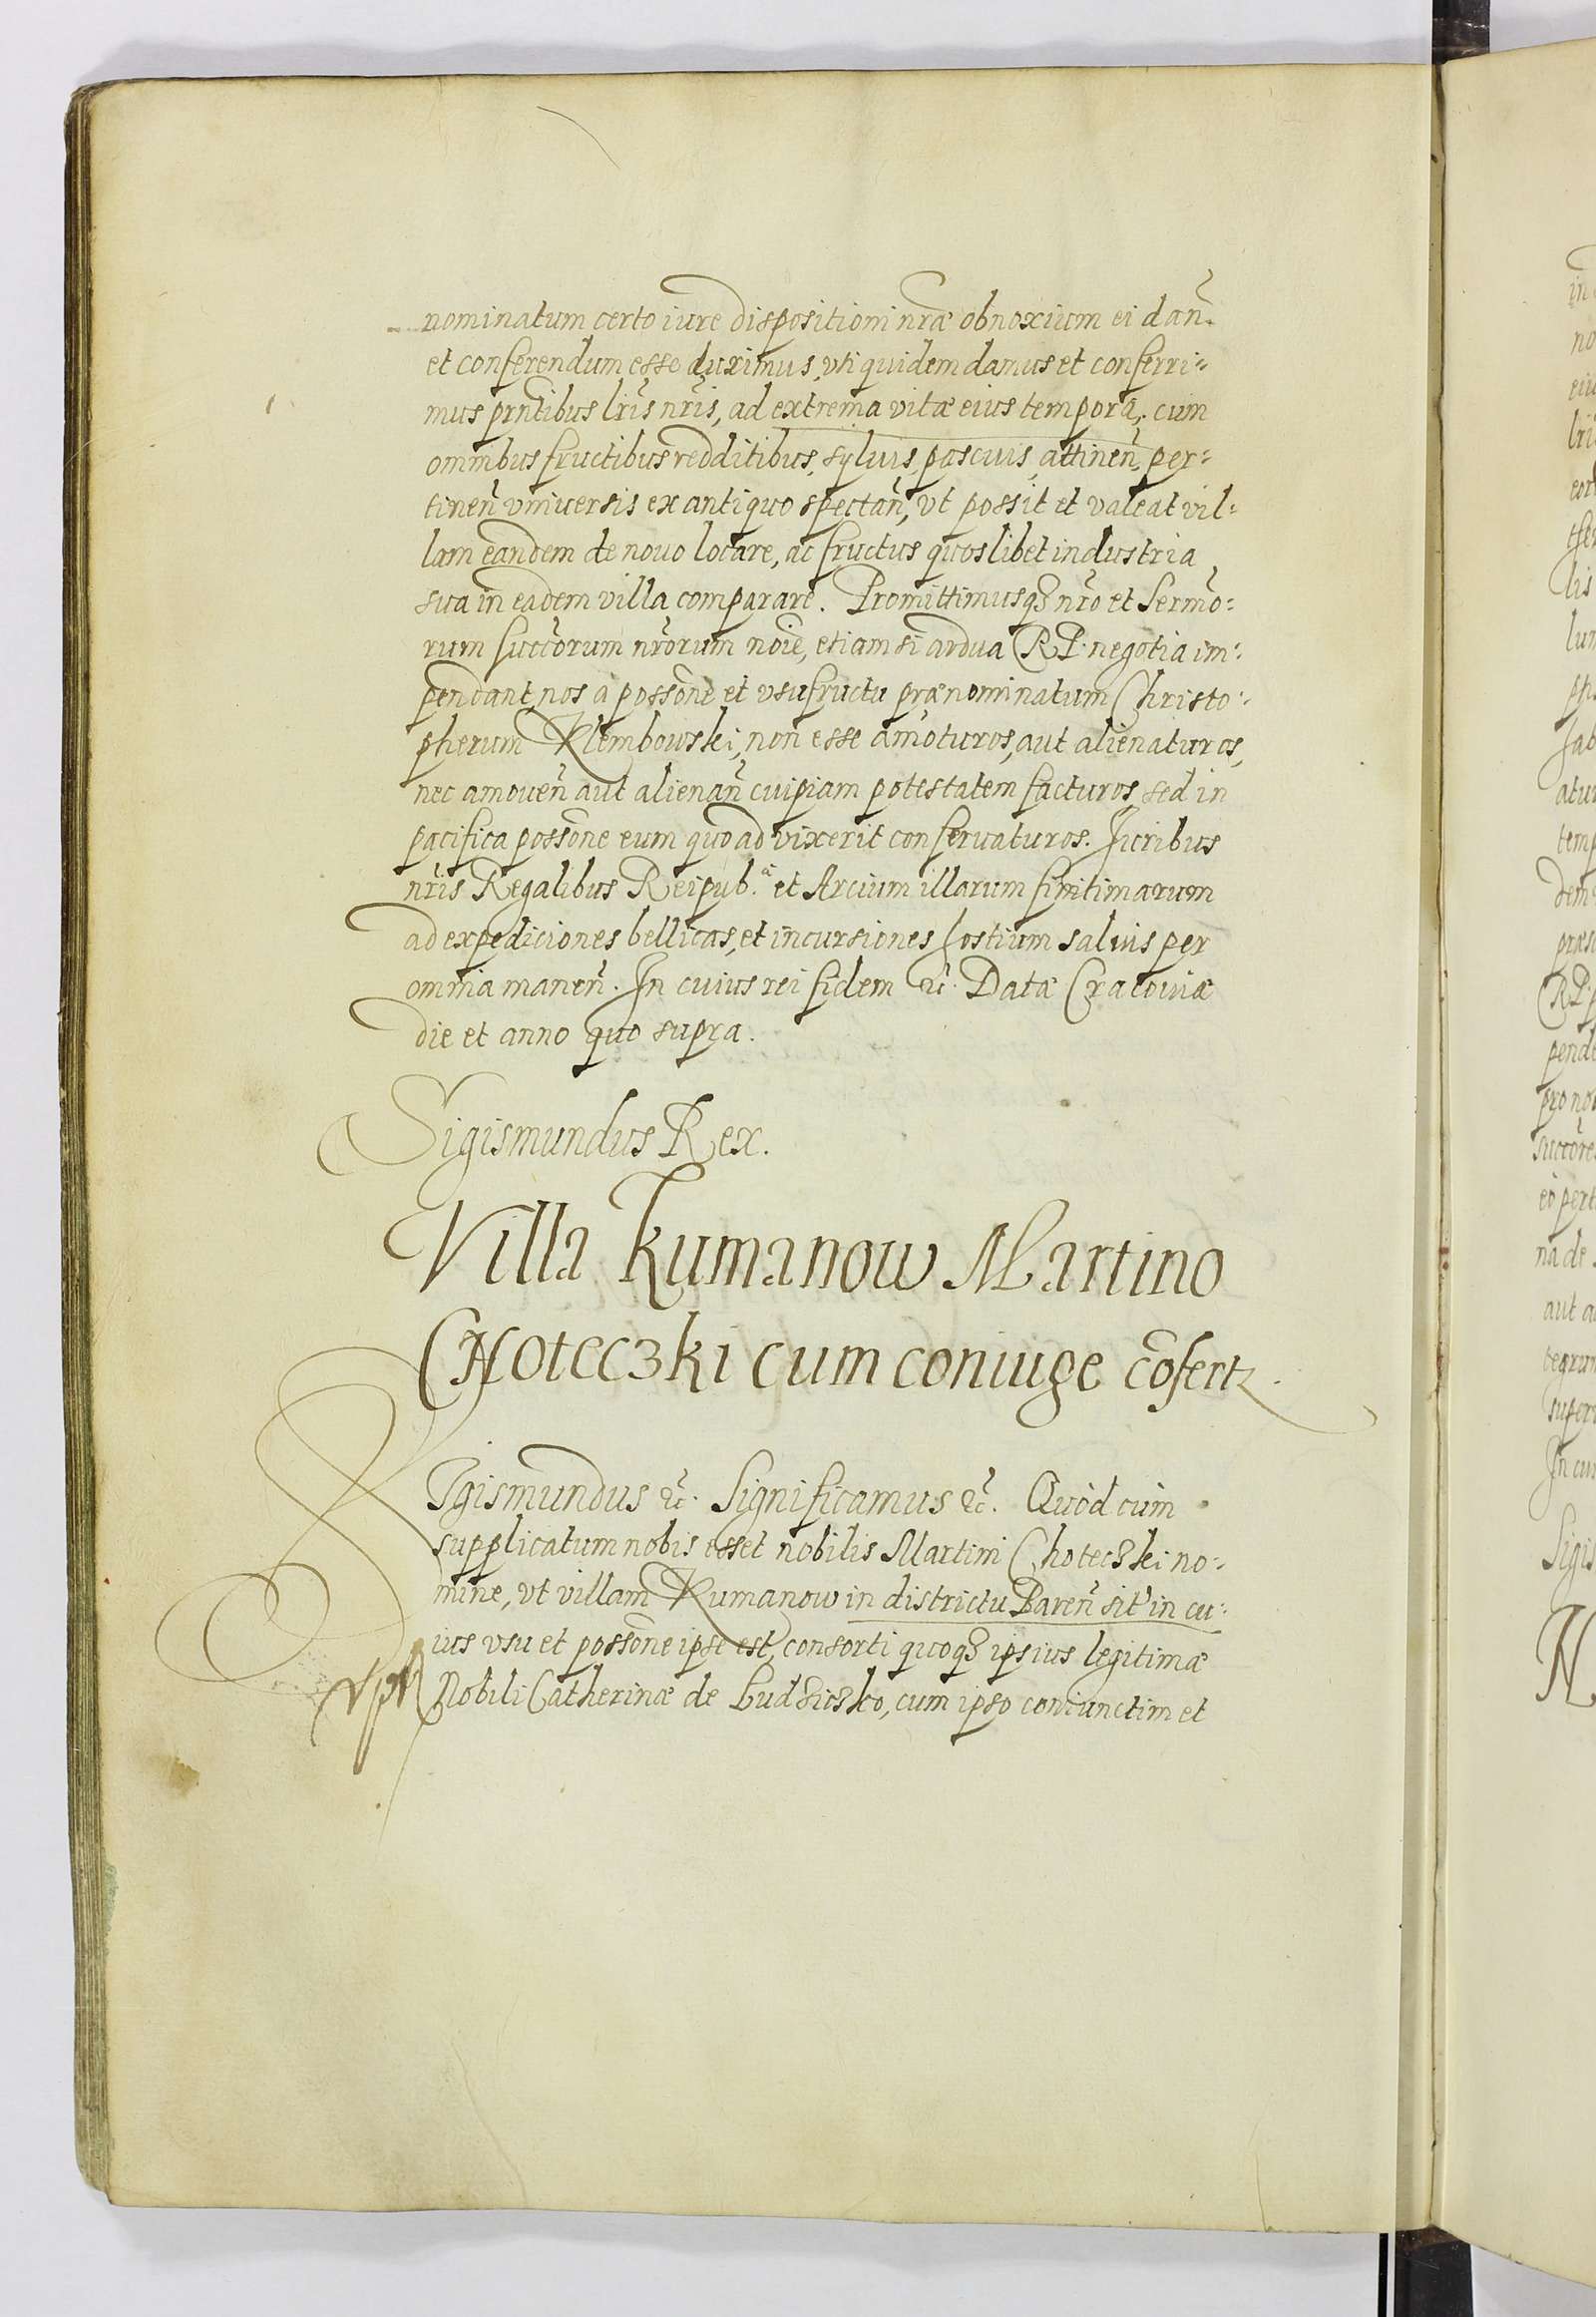 nominatum certo iure dispositioni nr̃æ obnoxium ei dañ.
et conferendum esse duximus, vti quidem damus et conferri:
mus prñtibus lr̃is nr̃is, ad extrema vitæ eius tempora, cum
omnibus fructibus redditibus, syluis, pascuis, attineñ, per:
tineñ vniuersis ex antiquo spectañ, vt possit et valeat vil:
lam eandem de nouo locare, ac fructus quoslibet industria
sua in eadem villa comparare. Promittimusq3 nr̃o et Sermõ:
rum succorum nr̃orum noiẽ, etiam si ardua RP. negotia im:
pendant, nos a possone et vsufructu prænominatum Christo:
pherum Klembowski, non esse amoturos, aut alienaturos,
nec amoueñ aut alienañ cuipiam potestatem facturos, sed in
pacifica possone eum quoad vixerit conseruaturos. Iuribus
nr̃is Regalibus Reipub.ᵃ et Arcium illarum finitimarum
ad expediciones bellicas, et incursiones hostium saluis per
omnia maneñ. In cuius rei fidem &c. Datæ Cracouiæ
die et anno quo supra.
Sigismundus Rex.
Villa Kumanow Martino
CHoteczki cum coniuge cõfertz.
SIgismundus &c. Significamus &c. Quòd cùm
supplicatum nobis esset nobilis Martini Choteczki no:
mine, vt villam Kumanow in districtu Bareñ sit' in cu:
ius vsu et possone ipse est, consorti quoq3 ipsius legitimæ
Nobili Catherinæ de Ludziczko, cum ipso coniunctim et